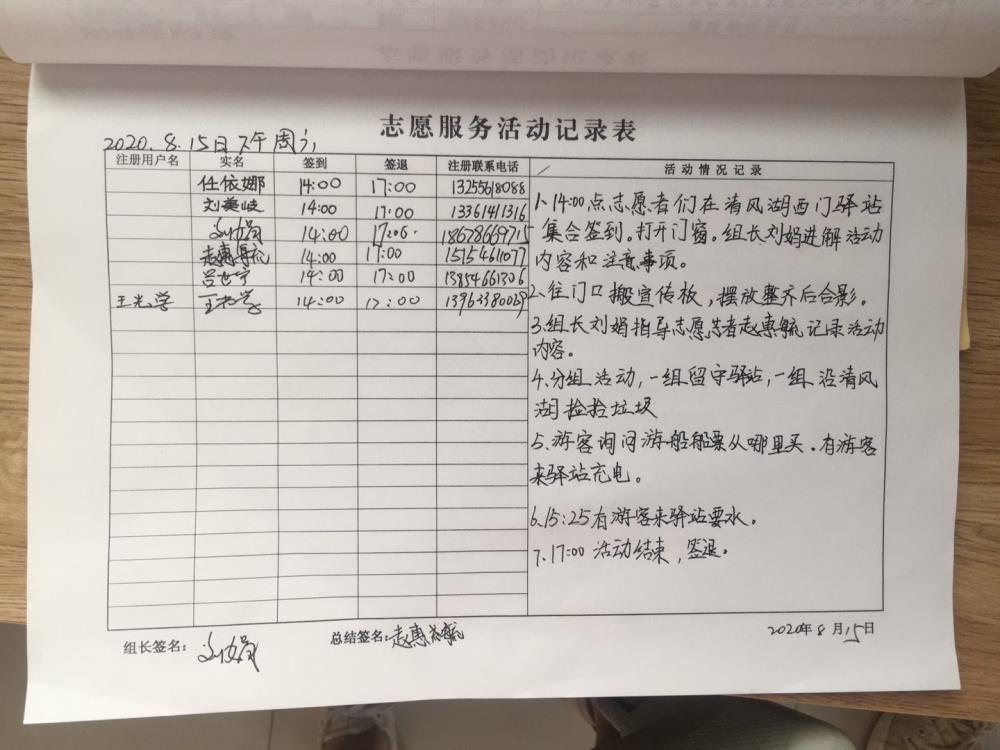 志愿服务活动记录表
2020.8.15日下午周六
注册用户名 实名 签到 签退 注册联系电话 活动情况记录
任依娜 14:00 17:00 13255618088
14:00 17:00 13361411316
刘娟 14:00 17:00 18678669715
赵惠毓 14:00 17:00 15154611077
吕世宁 14:00 17:00 13854661306
王光学 王光学 14:00 17:00 13963380069
1、14:00点志愿者们在清风湖西门驿站
集合签到。打开门窗。组长刘娟进解活动
内容和注意事项。
2、往门口搬宣传板,摆放整齐后合影。
3、组长刘娟指导志愿者赵惠毓记录活动
内容。
4、分组活动,一组留守驿站,一组沿清风
湖捡拾垃圾
5、游客询问游船船票从哪里买。有游客
来驿站充电。
6、15:25有游客来驿站要水。
7、17:00活动结束,签退。
组长签名:刘娟 总结签名:赵惠毓 2020年8月15日